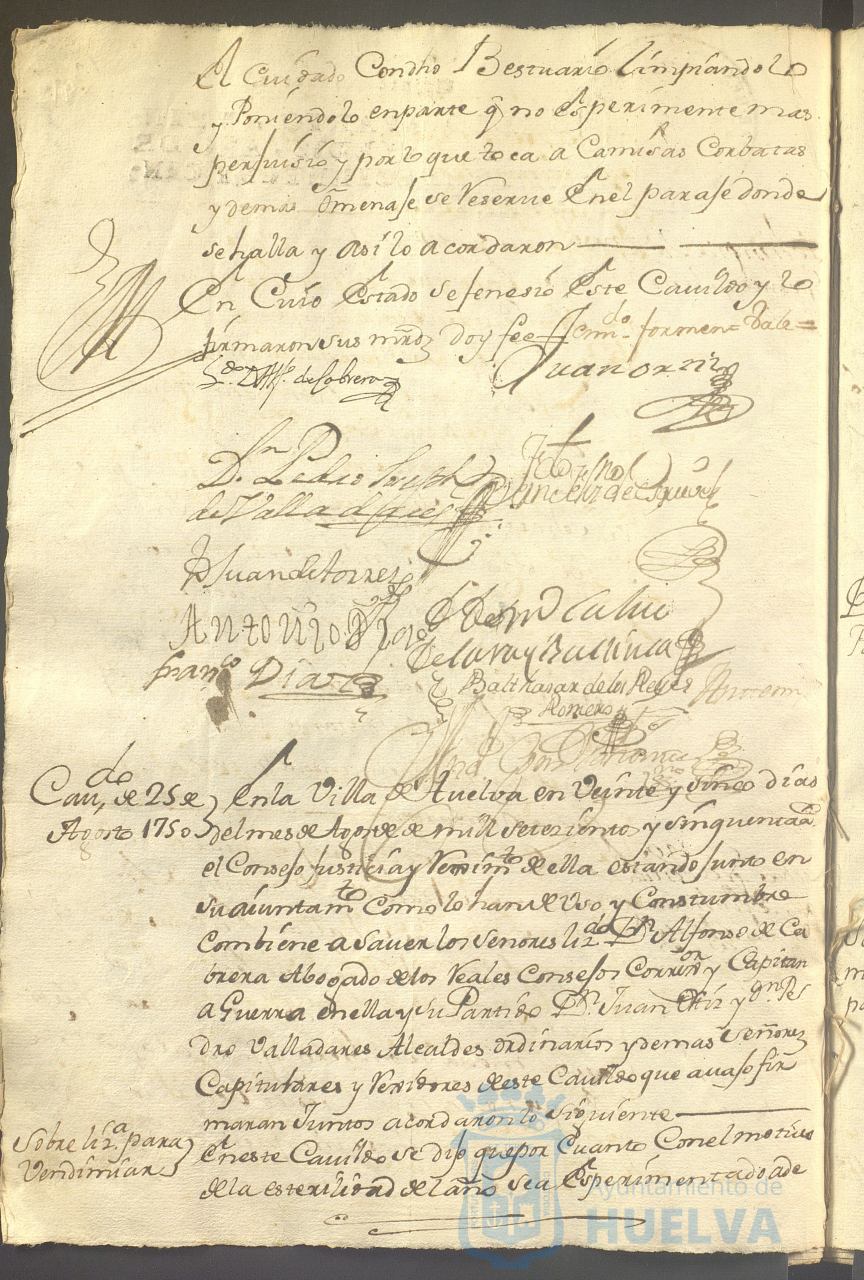 el Cuidado Con dho Bestuario limpiandolo
y Poniendolo en parte q̃ no esperimente mas
perjuisio y por lo que toca a Camisas Corbatas
y demas omenaje se Reserve en el paraje donde
se halla y asi lo acordaron
En Cuio estado se fenesio este Cavildo y lo
firmaron sus mrds doy fee
Juan ortiz
Dn Pedro Joseph
de Valladares
Juan de torres
Antonio
franco Diaz
Balthasar de los Reyes
Romero
Cavdo de 25 de
Agosto 1750
En la Villa de Huelva en Veinte y sinco dias
del mes de Agosto de mill setezientos y sinquenta a
el Consejo Justicia y Reximto de ella estando junto en
su aiuntamto Como lo han de Uso y Constumbre
Combiene a Saver los Señores lizdo Dn Alfonso de Ca
brera Abogado de los Reales Consejos Correxor y Capitan
a Guerra en ella y su Partido Dn Juan Ortiz y Dn Pe
dro Valladares Alcaldes ordinarios y demas Señores
Capitulares y Rexidores de este Cavildo que avajo fir
maran Juntos acordaron lo siguiente
Sobre liza para
Vendimiar
En este Cavildo se dijo que por Cuanto Con el motivo
de la esterilidad del año sea esperimentado de
Ayuntamiento de
HUELVA